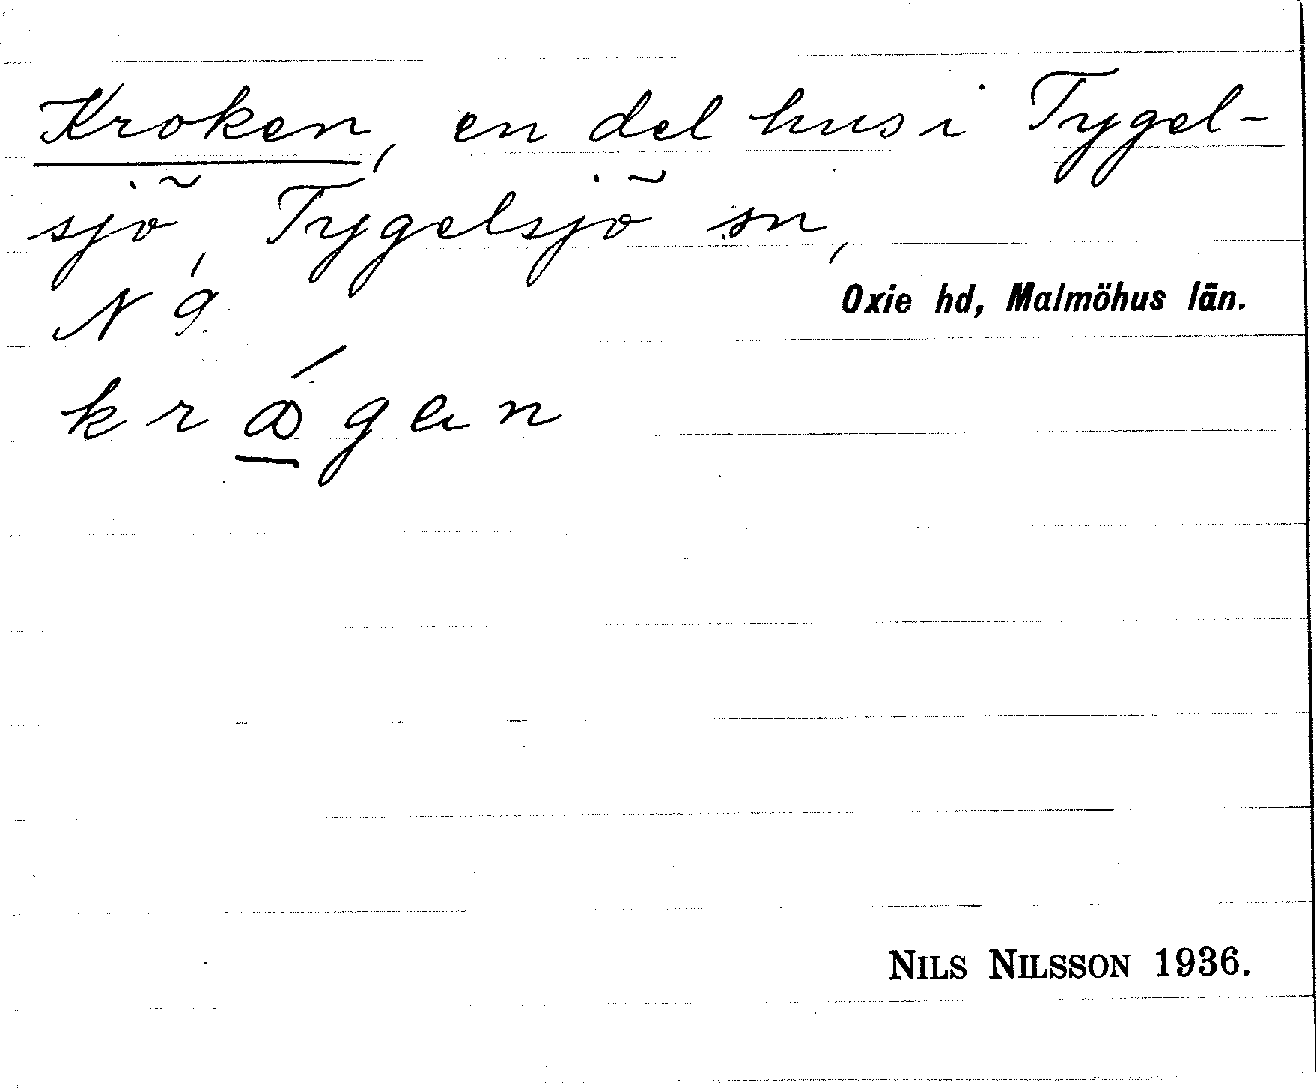 Kroken, en del hus i Tygel-
sjö, Tygelsjö sn,
N 9.
Oxie hd, Malmöhus län.
NILS NILSSON 1936.